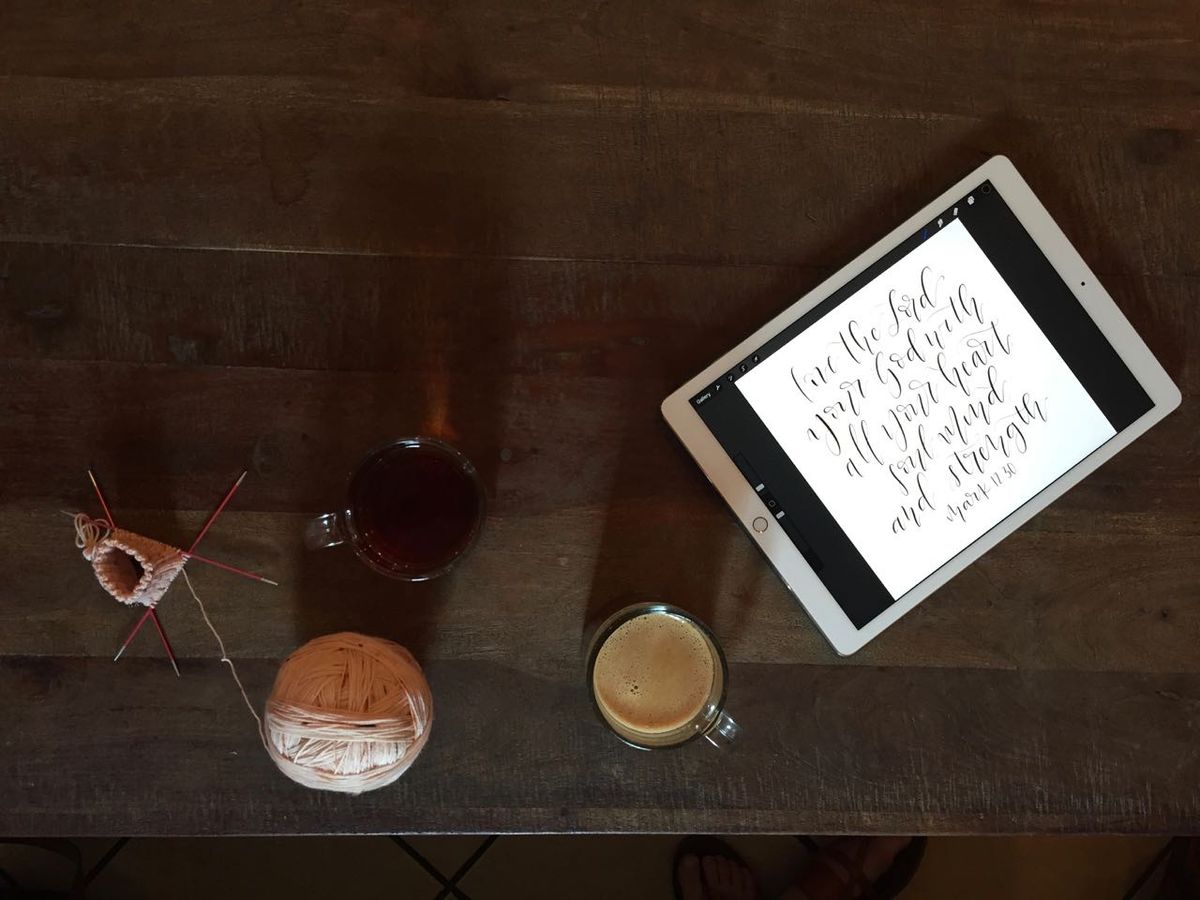 Gallery
love the Lord
your God with
all your heart
soul mind
and strength
mark 12:30